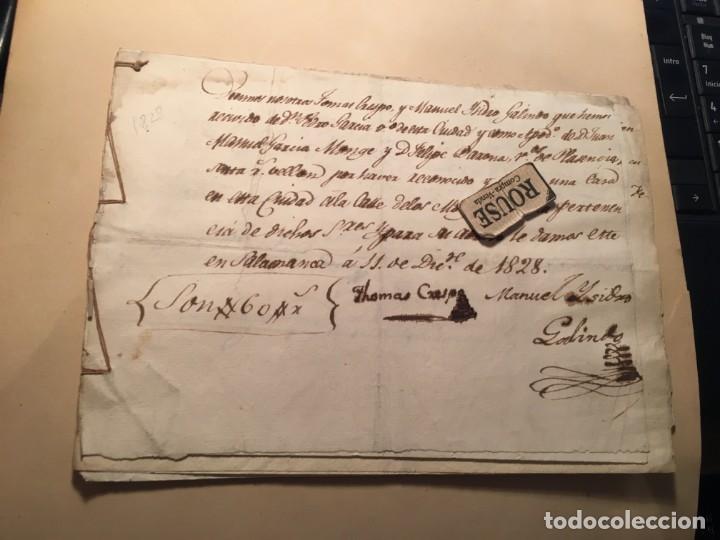 1828
Dezimos nosotros Tomas Crespo, y Manuel Ysidro Galindo que hemos
recivido de Dn Pedro Garcia v.o de esta Ciudad y como Apod.o de D. Juan
Manuel Garcia Monge y D. Felipe Barona, v.os de Plasencia,
senta r.s vellon por haver reconocido y una Casa
en esta Ciudad a la Calle de los pertenen
cia de dichos S.res y para su le damos este
en Salamanca á 11. de Dic.re de 1828.
Son # 60 # r.s
Thomas Crespo
Manuel Ysidro
Galindo
ROUSE
Compra-Venta
Intro
Bloq
Num
7
4
1
todocoleccion.net